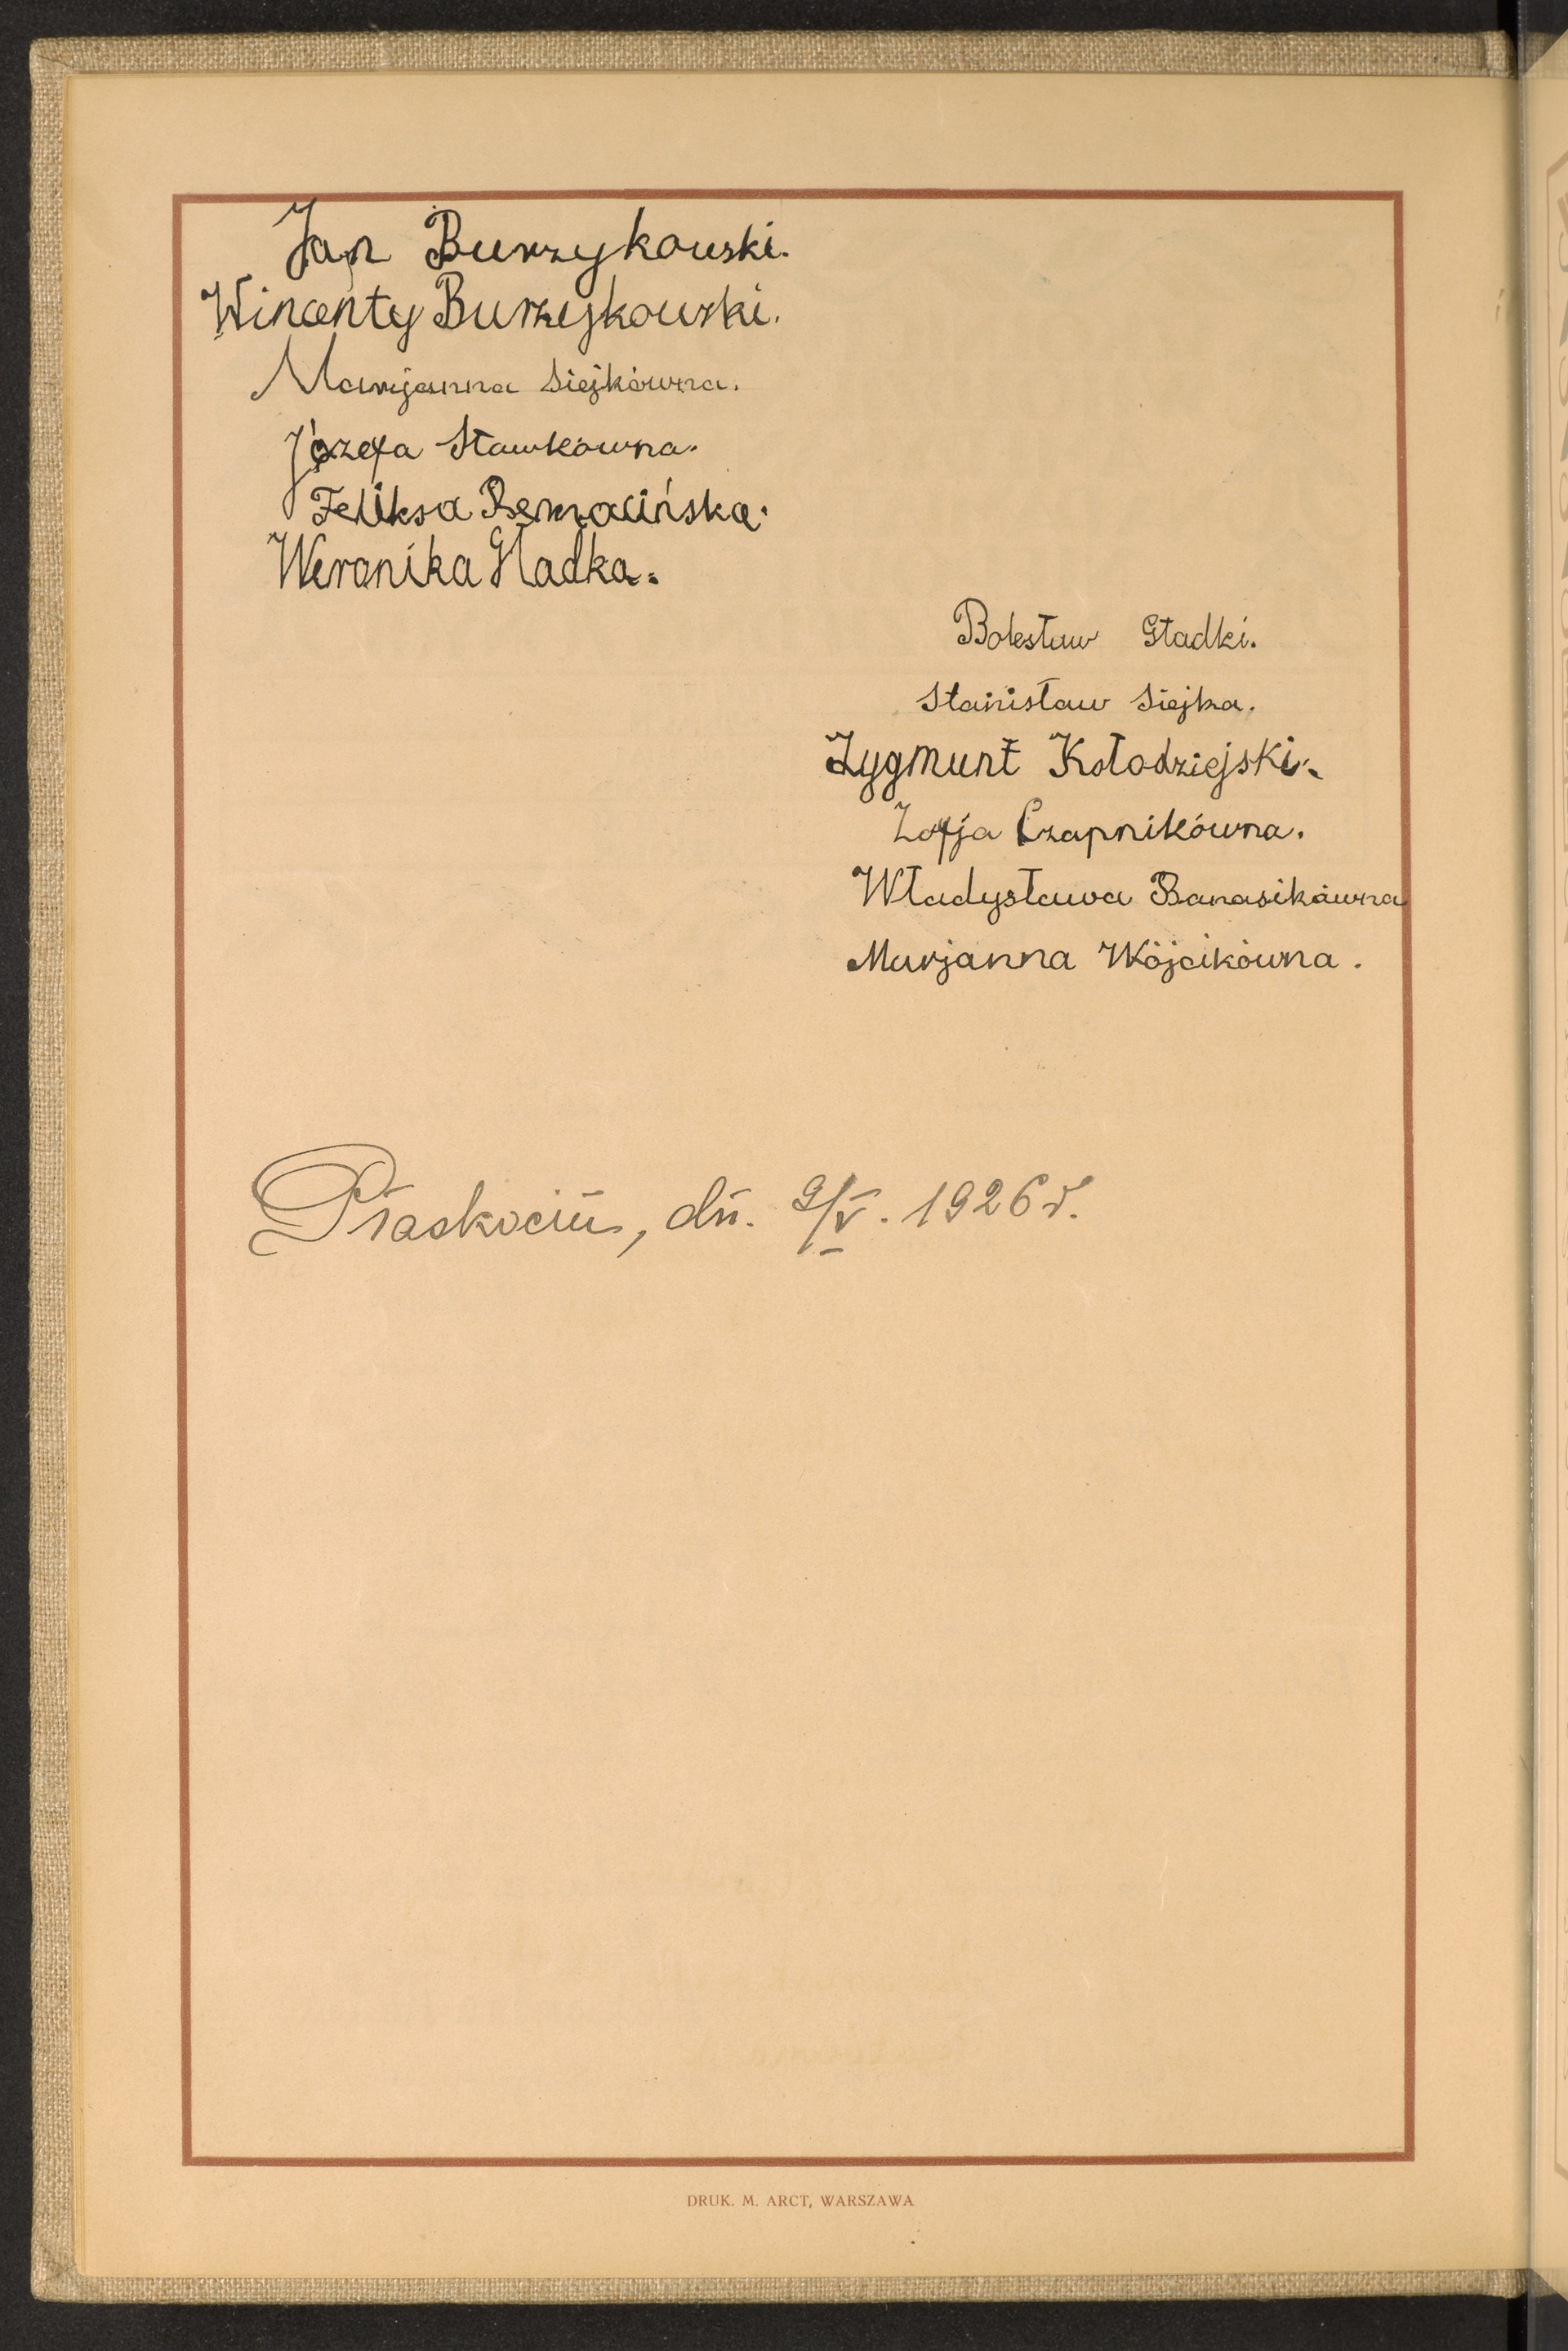 Jan Burzykowski.
Wincenty Burzykowski.
Marjanna Siejkówna.
Józefa Sławkówna.
Feliksa
Weronika Gładka.
Bolesław Gładki.
Stanisław Siejka.
Zygmunt Kołodziejski.
Zofja Czapnikówna.
Władysława Banasikówna
Marjanna Wójcikówna.
dń. 9/V. 1926 r.
DRUK. M. ARCT, WARSZAWA